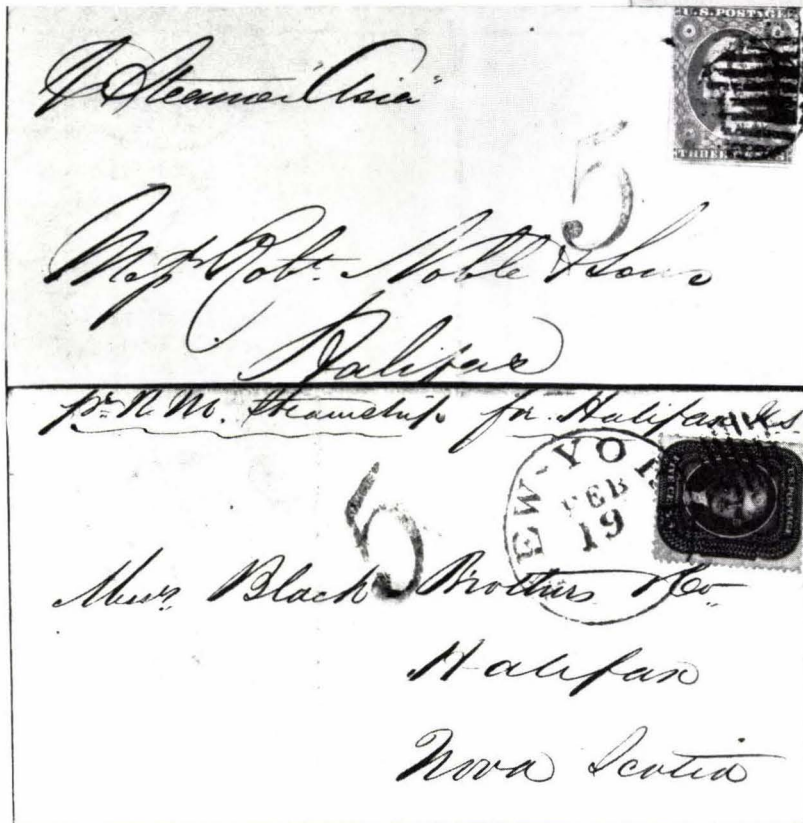 U.S. POSTAGE
P Steamer "Asia"
THREE
5
Mess Robt. Noble & Sons
Halifax
pr R. M. Steamship for Halifax N.S.
EW-YOR
FEB
19
U.S. POSTAGE
5
Messrs Black Brothers & Co
Halifax
Nova Scotia